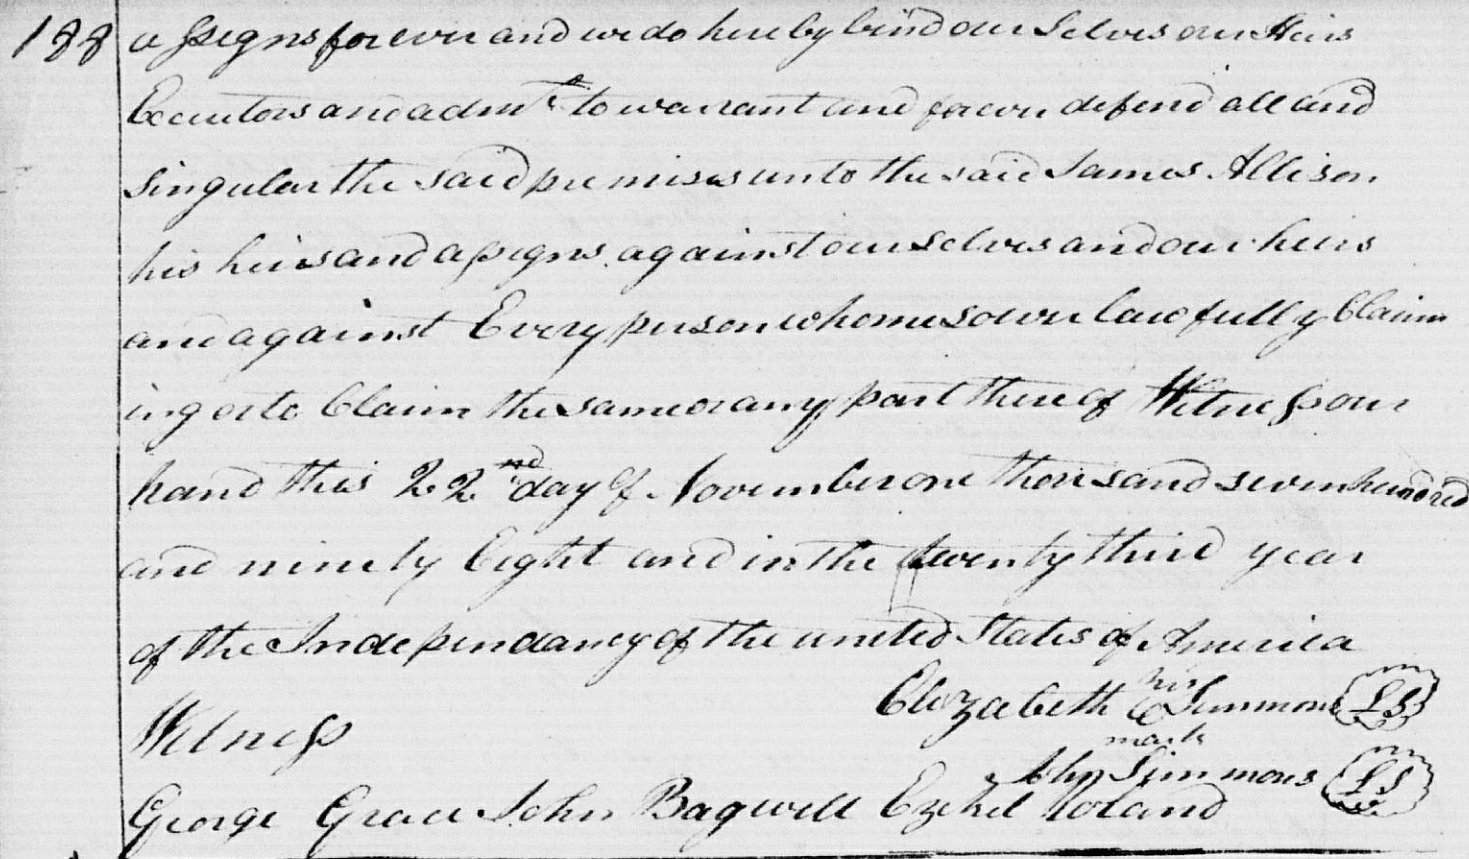 188 assigns forever and we do hereby bind our Selves our Heirs
Executors and adm^rs to warrant and forever defend all and
Singular the said premises unto the said James Allison
his heirs and assigns against ourselves and our heirs
and against Every person whomesoever lawfully Claim
ing or to Claim the same or any part there of Witness our
hand this 22^nd day of November one thousand seven hundred
and ninety Eight and in the twenty third year
of the Independancy of the united States of America
Elizabeth his mark Simmons LS
Witness
John Simmons LS
George Grace John Bagwell Ezekel Roland